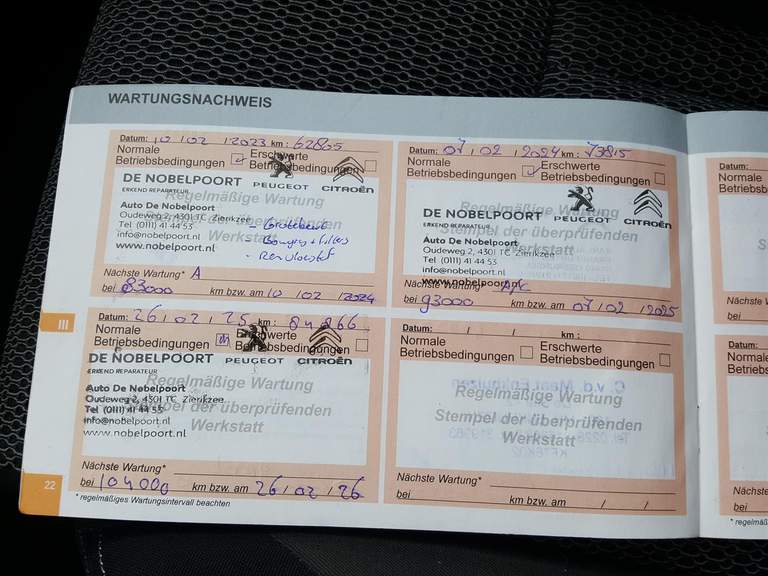 WARTUNGSNACHWEIS
Datum: 10 / 02 / 2023 km: 62805
Normale Betriebsbedingungen
Erschwerte Betriebsbedingungen
DE NOBELPOORT
ERKEND REPARATEUR
PEUGEOT CITROËN
Auto De Nobelpoort
Oudeweg 2, 4301 TC Zierikzee
Tel (0111) 41 44 53
info@nobelpoort.nl
www.nobelpoort.nl
Regelmäßige Wartung
Stempel der überprüfenden
Werkstatt
- Grotebeurt
- Remvloeistof
Nächste Wartung* A
bei 83000 km bzw. am 10 / 02 / 2024
Datum: 07 / 02 / 2024 km: 73815
Normale Betriebsbedingungen
Erschwerte Betriebsbedingungen
DE NOBELPOORT
ERKEND REPARATEUR
PEUGEOT CITROËN
Auto De Nobelpoort
Oudeweg 2, 4301 TC Zierikzee
Tel (0111) 41 44 53
info@nobelpoort.nl
www.nobelpoort.nl
Regelmäßige Wartung
Stempel der überprüfenden
Werkstatt
Nächste Wartung*
bei 93000 km bzw. am 07 / 02 / 2025
III
Datum: 26 / 02 / 25 km: 84866
Normale Betriebsbedingungen
Erschwerte Betriebsbedingungen
DE NOBELPOORT
ERKEND REPARATEUR
PEUGEOT CITROËN
Auto De Nobelpoort
Oudeweg 2, 4301 TC Zierikzee
Tel (0111) 41 44 53
info@nobelpoort.nl
www.nobelpoort.nl
Regelmäßige Wartung
Stempel der überprüfenden
Werkstatt
Nächste Wartung*
bei 104000 km bzw. am 26 / 02 / 26
Datum: / / km:
Normale Betriebsbedingungen
Erschwerte Betriebsbedingungen
Regelmäßige Wartung
Stempel der überprüfenden
Werkstatt
Nächste Wartung*
bei km bzw. am / /
22
* regelmäßiges Wartungsintervall beachten
Datum:
Normale
Betriebsbe
Nächste W
bei
Datum:
Normale
Betriebsbe
Nächste
bei
* regelmä